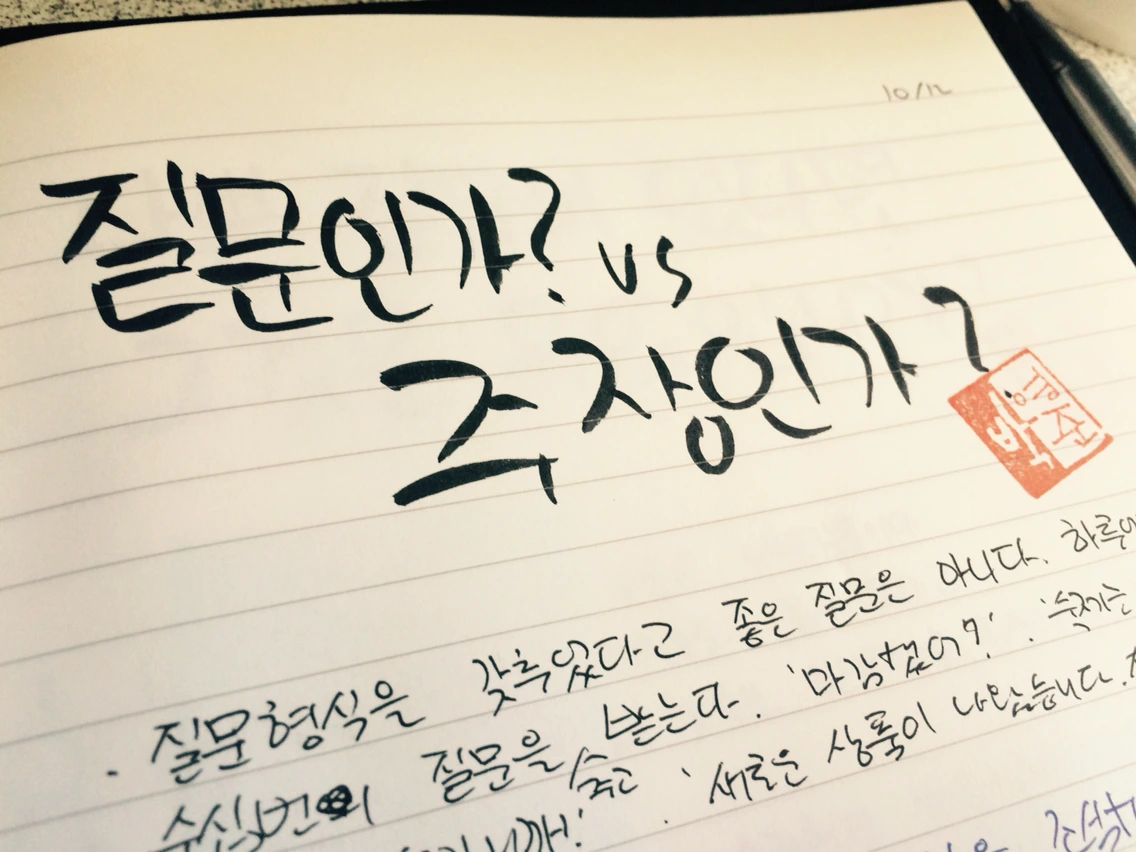 10/12
질문인가? vs
주장인가?
· 질문형식을 갖추었다고 좋은 질문은 아니다. 하루에
수십번의 질문을 주고 받는다. '마감했어?'. '숙제는
'새로운 상품이 나왔습니다.